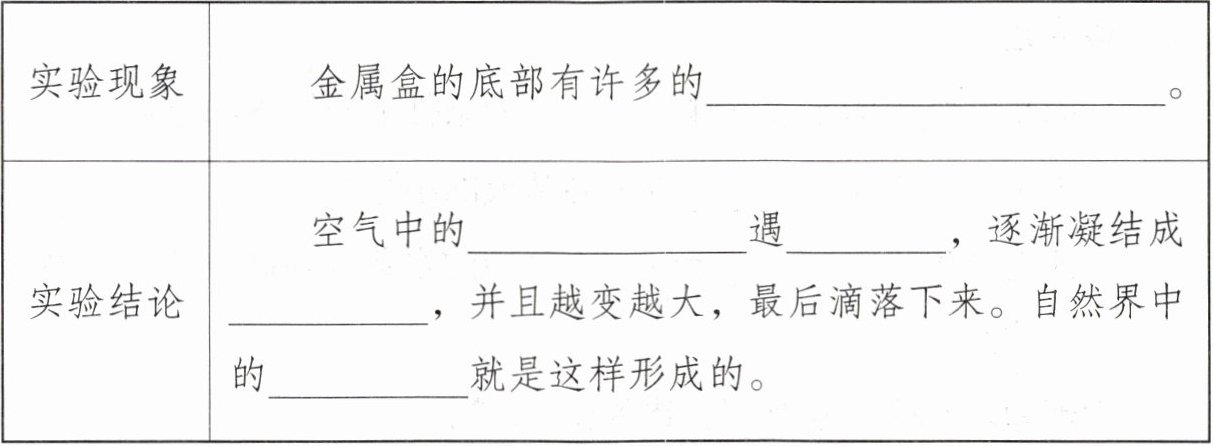 实验现象
金属盒的底部有许多的____________________。
实验结论
空气中的____________遇_______，逐渐凝结成
_________，并且越变越大，最后滴落下来。自然界中
的_________就是这样形成的。